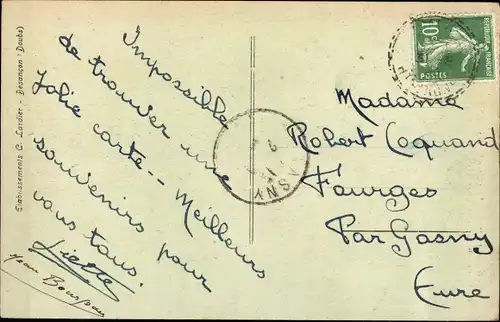 Etablissements C. Lardier - Besançon (Doubs)
Impossible
de trouver une
Jolie carte -- Meilleurs
souvenirs pour
vous tous.
Liette
Jean
REPUBLIQUE FRANÇAISE
10c
POSTES
Madame
Robert Coquand
Fourges
Par Gasny
Eure